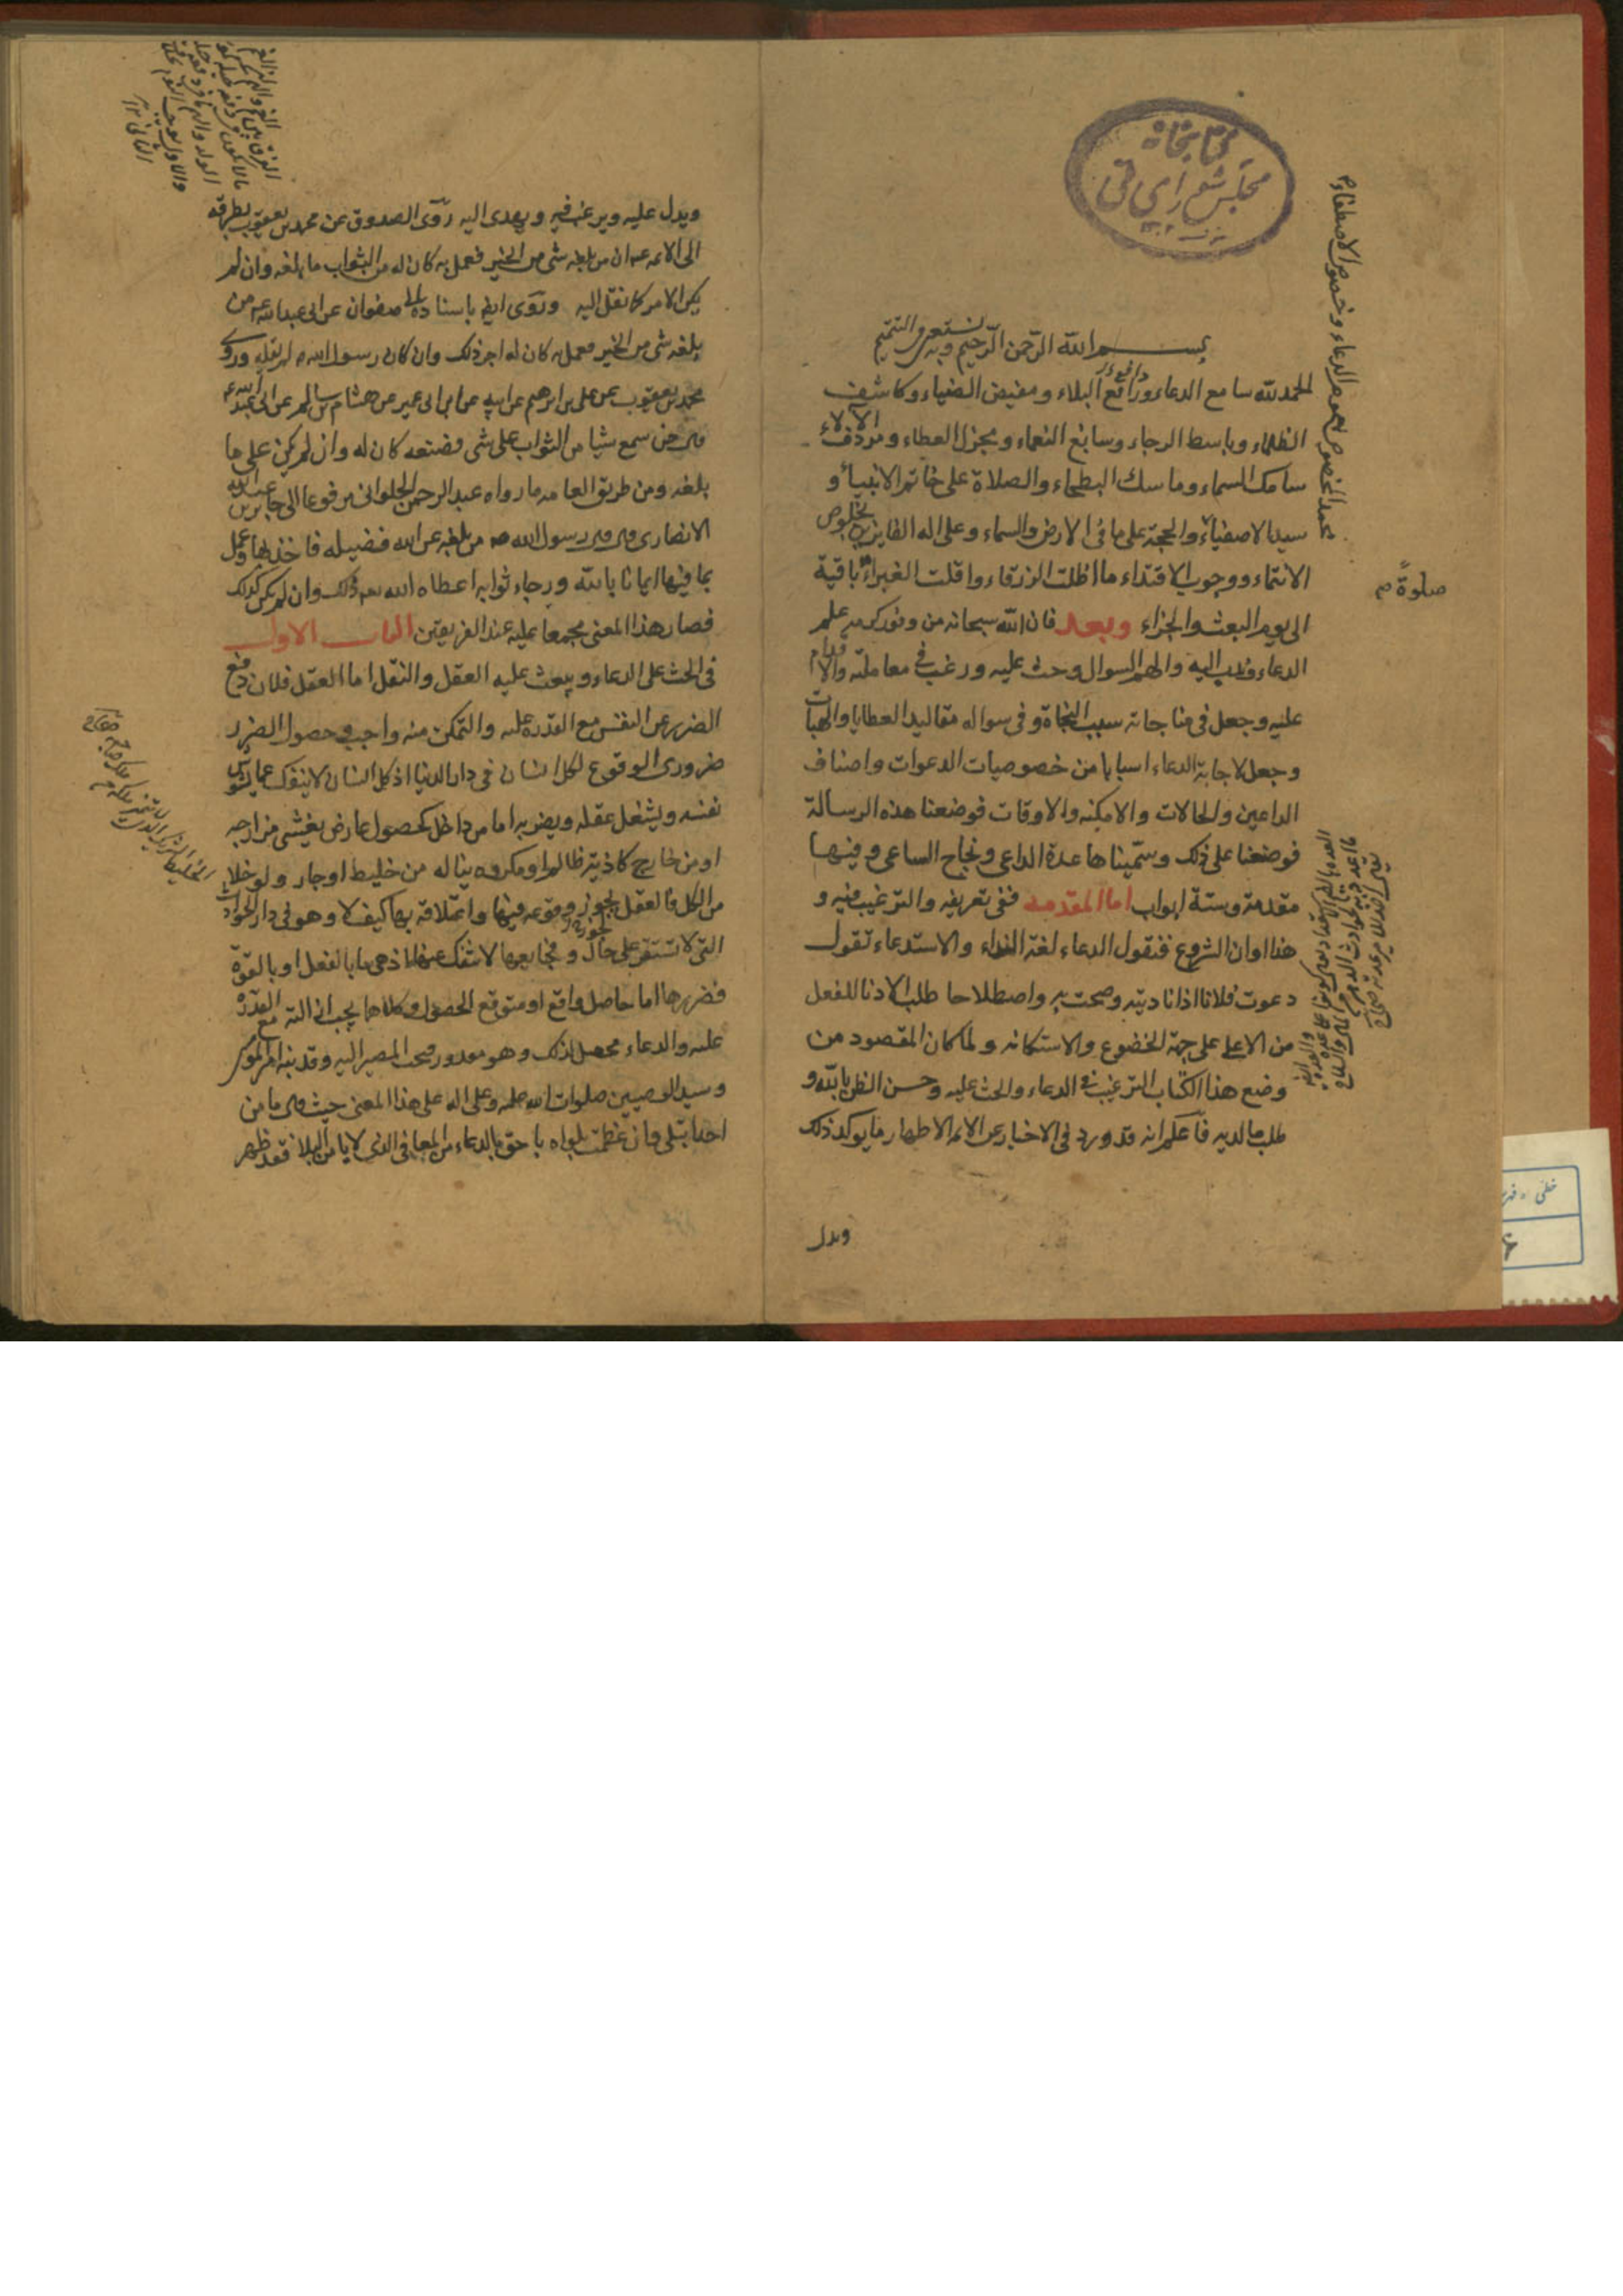 كتابخانه
مجلس شورای ملی
بسم الله الرحمن الرحيم وبه نستعين في التتميم
الحمد لله سامع الدعاء ورافع البلاء ومفيض الضياء وكاشف
الظلماء وباسط الرجاء وسابغ النعماء ومجزل العطاء ومردف الآلاء
سامك السماء وماسك البطحاء والصلاة على خاتم الانبياء و
سيد الاصفياء والحجة على ما في الارض والسماء وعلى اله الفايزين بخلوص
الانتماء ووجوب الاقتداء ما اظلت الزرقاء واقلت الغبراء باقية
صلوة م
الى يوم البعث والجزاء وبعد فان الله سبحانه من وفور كرمه علم
الدعاء وندب اليه والهم السوال وحث عليه ورغب في معاملته والاقدام
عليه وجعل في مناجاته سبب النجاة وفي سواله مقاليد العطايا والهبات
وجعل لاجابة الدعاء اسبابا من خصوصيات الدعوات واصناف
الداعين والحالات والامكنه والاوقات فوضعنا هذه الرسالة
فوضعنا على ذلك وسميناها عدة الداعى ونجاح الساعى وفيها
مقدمة وستة ابواب اما المقدمه ففى تعريفه والترغيب فيه و
هذا اوان الشروع فنقول الدعاء لغة النداء والاستدعاء تقول
دعوت فلانا اذا ناديته وصحت به واصطلاحا طلب الادنا للفعل
من الاعلى على جهة الخضوع والاستكانه ولما كان المقصود من
وضع هذا الكتاب الترغيب في الدعاء والحث عليه وحسن الظن بالله و
طلب ما لديه فاعلم انه قد ورد في الاخبار عن الائمه الاطهار ما يوكد ذلك
ويدل
ويدل عليه ويرغب فيه ويهدى اليه روى الصدوق عن محمد بن يعقوب بطرقه
الى الائمه ع ان من بلغه شى من الخير فعمل به كان له من الثواب ما بلغه وان لم
يكن الامر كما نقل اليه وروى ايضا باسناده الى صفوان عن ابى عبد الله ع من
بلغه شى من الخير فعمل به كان له اجر ذلك وان كان رسول الله ص لم يقله وروى
محمد بن يعقوب عن على بن ابرهيم عن ابيه عن ابن ابى عمير عن هشام بن سالم عن ابى عبد الله ع
قال من سمع شيا من الثواب على شى فصنعه كان له وان لم يكن على ما
بلغه ومن طريق العامه ما رواه عبد الرحمن الحلوانى مرفوعا الى جابر بن عبد الله
الانصارى قال قال رسول الله ص من بلغه عن الله فضيله فاخذ بها وعمل
بما فيها ايمانا بالله ورجاء ثوابه اعطاه الله تعالى ذلك وان لم يكن كذلك
فصار هذا المعنى مجمعا عليه عند الفريقين الباب الاول
في الحث على الدعاء ويبعث عليه العقل والنقل اما العقل فلان دفع
الضرر عن النفس مع القدرة عليه والتمكن منه واجب وحصول الضرر
ضرورى الوقوع لكل انسان فى دار الدنيا اذ كل انسان لا ينفك عما يشوش
نفسه ويشغل عقله ويضر به اما من داخل كحصول عارض يغشى مزاجه
او من خارج كاذية ظالم او مكروه يناله من خليط او جار ولو خلا
من الكل فالعقل يجوز وقوعه فيها واعتلاقه بها كيف لا وهو في دار الحوادث
التى لا تستقر على حال وفجايعها لا تنفك عنها اذ هى اما بالفعل او بالقوة
فضررها اما حاصل واقع او متوقع الحصول وكلاهما يجب ازالته مع القدرة
عليه والدعاء محصل لذلك وهو مقدور فيجب المصير اليه وقد نبه امير المومنين
وسيد الوصيين صلوات الله عليه وعلى اله على هذا المعنى حيث قال ما من
احد ابتلى وان عظمت بلواه باحق بالدعاء من المعافى الذى لا يامن البلاء فقد ظهر